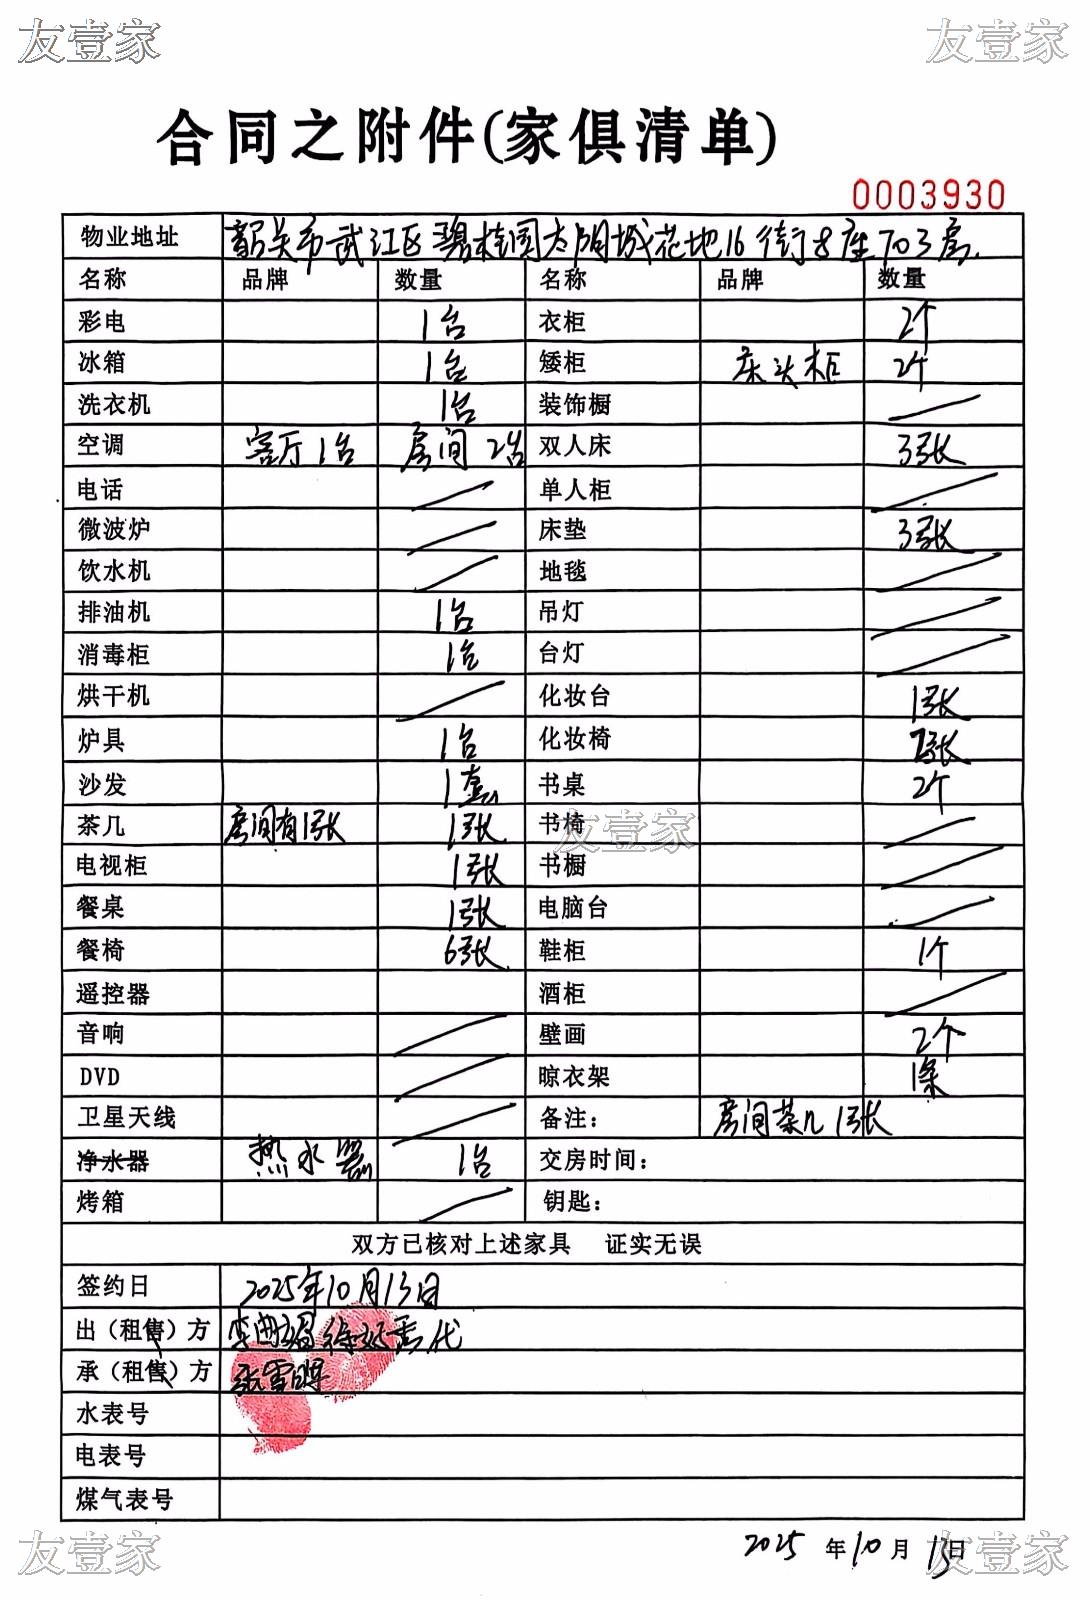 友壹家 友壹家
合同之附件(家俱清单)
0003930
物业地址 韶关市武江区碧桂园太阳城花地16街8座703房.
名称 品牌 数量 名称 品牌 数量
彩电 1台 衣柜 2个
冰箱 1台 矮柜 床头柜 2个
洗衣机 1台 装饰橱
空调 客厅1台 房间2台 双人床 3张
电话 单人柜
微波炉 床垫 3张
饮水机 地毯
排油机 1台 吊灯
消毒柜 1台 台灯
烘干机 化妆台 1张
炉具 1台 化妆椅 张
沙发 1套 书桌 2个
茶几 房间有1张 1张 书椅
友壹家
电视柜 1张 书橱
餐桌 1张 电脑台
餐椅 6张 鞋柜 1个
遥控器 酒柜
音响 壁画 2个
DVD 晾衣架 1条
卫星天线 备注: 房间茶几1张
净水器 热水器 1台 交房时间:
烤箱 钥匙:
双方已核对上述家具 证实无误
签约日 2025年10月13日
出(租售)方 李 代
承(租售)方 张雪
水表号
电表号
煤气表号
2025年10月13日
友壹家 友壹家